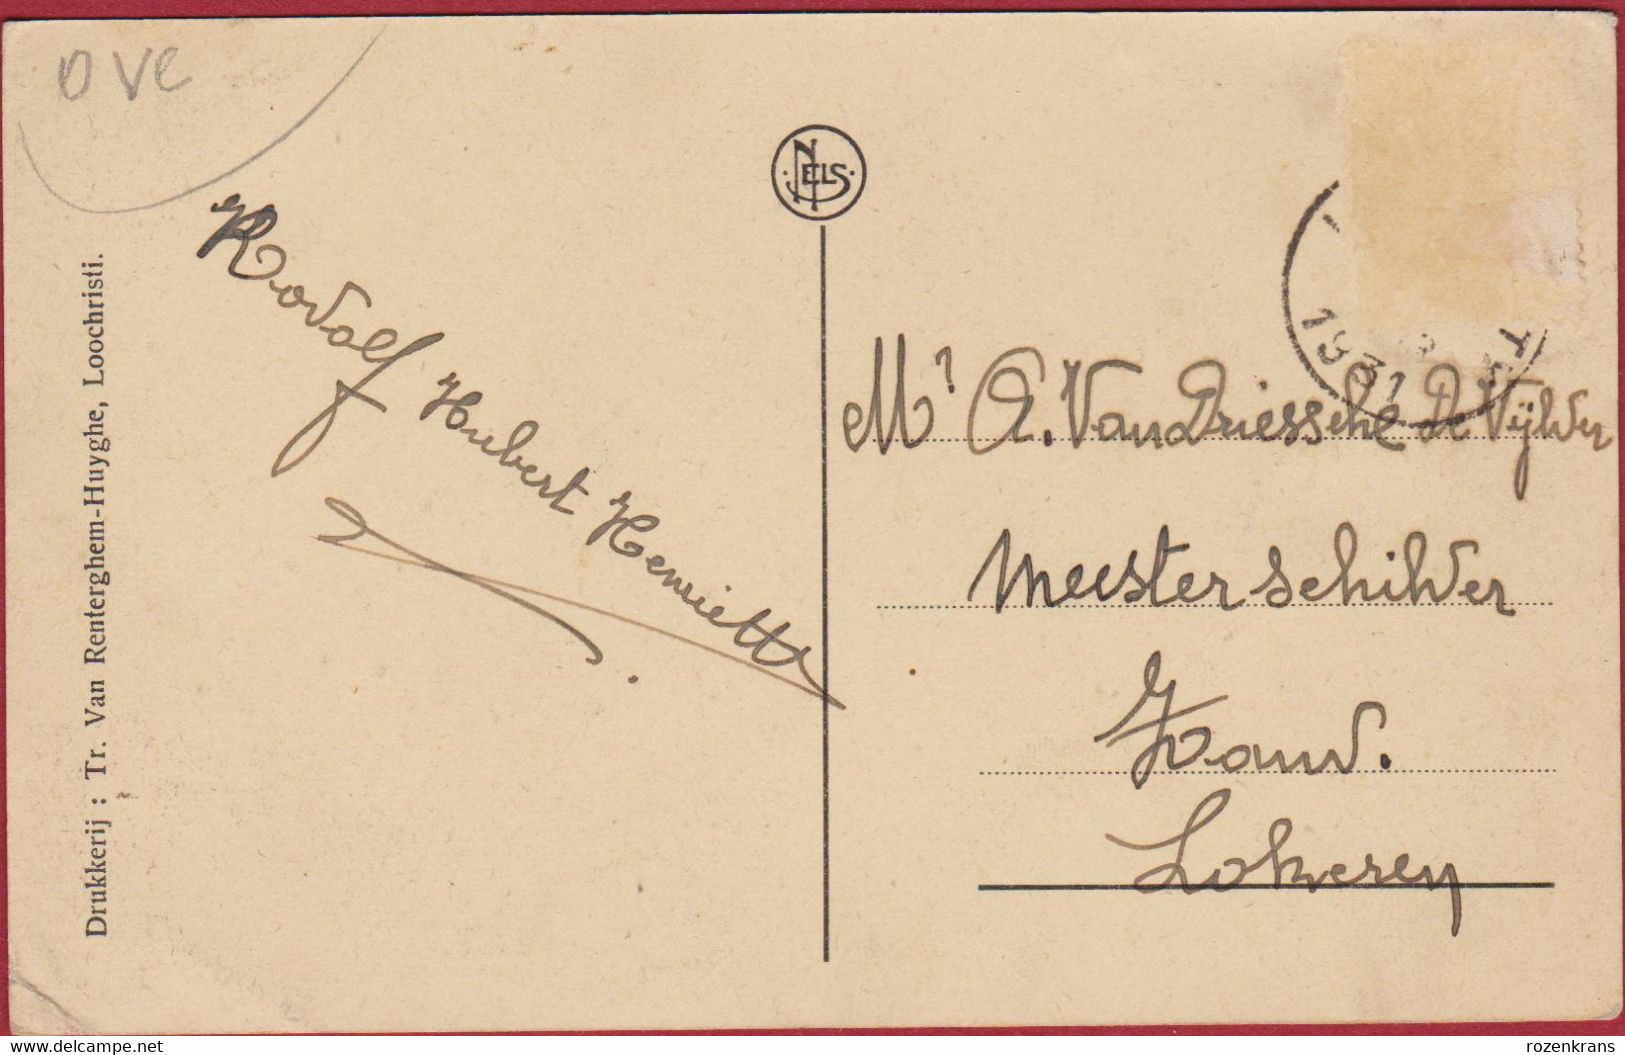 O VE
NELS
Drukkerij : Tr. Van Renterghem-Huyghe, Loochristi.
Rodolf Hubert Henriette
1931
Mr A. Van Driessche De Vijlder
Meesterschilder
Zand.
Lokeren
www.delcampe.net
rozenkrans